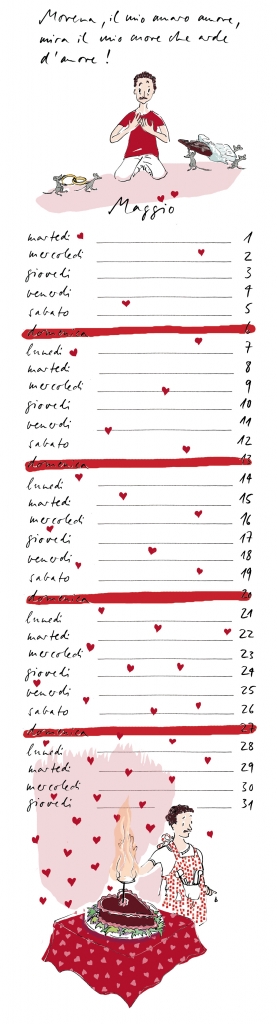 Morena, il mio amaro amore,
mira il mio cuore che arde
d'amore!
Maggio
martedì 1
mercoledì 2
giovedì 3
venerdì 4
sabato 5
domenica 6
lunedì 7
martedì 8
mercoledì 9
giovedì 10
venerdì 11
sabato 12
domenica 13
lunedì 14
martedì 15
mercoledì 16
giovedì 17
venerdì 18
sabato 19
domenica 20
lunedì 21
martedì 22
mercoledì 23
giovedì 24
venerdì 25
sabato 26
domenica 27
lunedì 28
martedì 29
mercoledì 30
giovedì 31